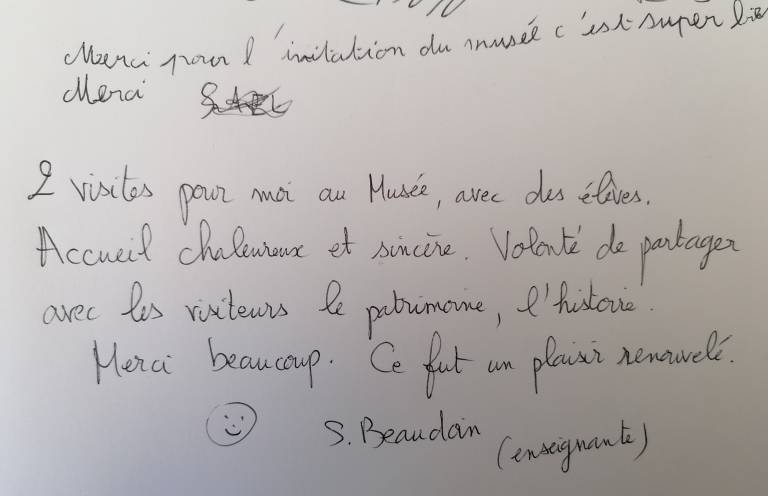 Merci pour l'initation du musée c'est super bien
Merci
2 visites pour moi au Musée, avec des élèves.
Accueil chaleureux et sincère. Volonté de partager
avec les visiteurs le patrimoine, l'histoire.
Merci beaucoup. Ce fut un plaisir renouvelé.
S. Beaudoin (enseignante)